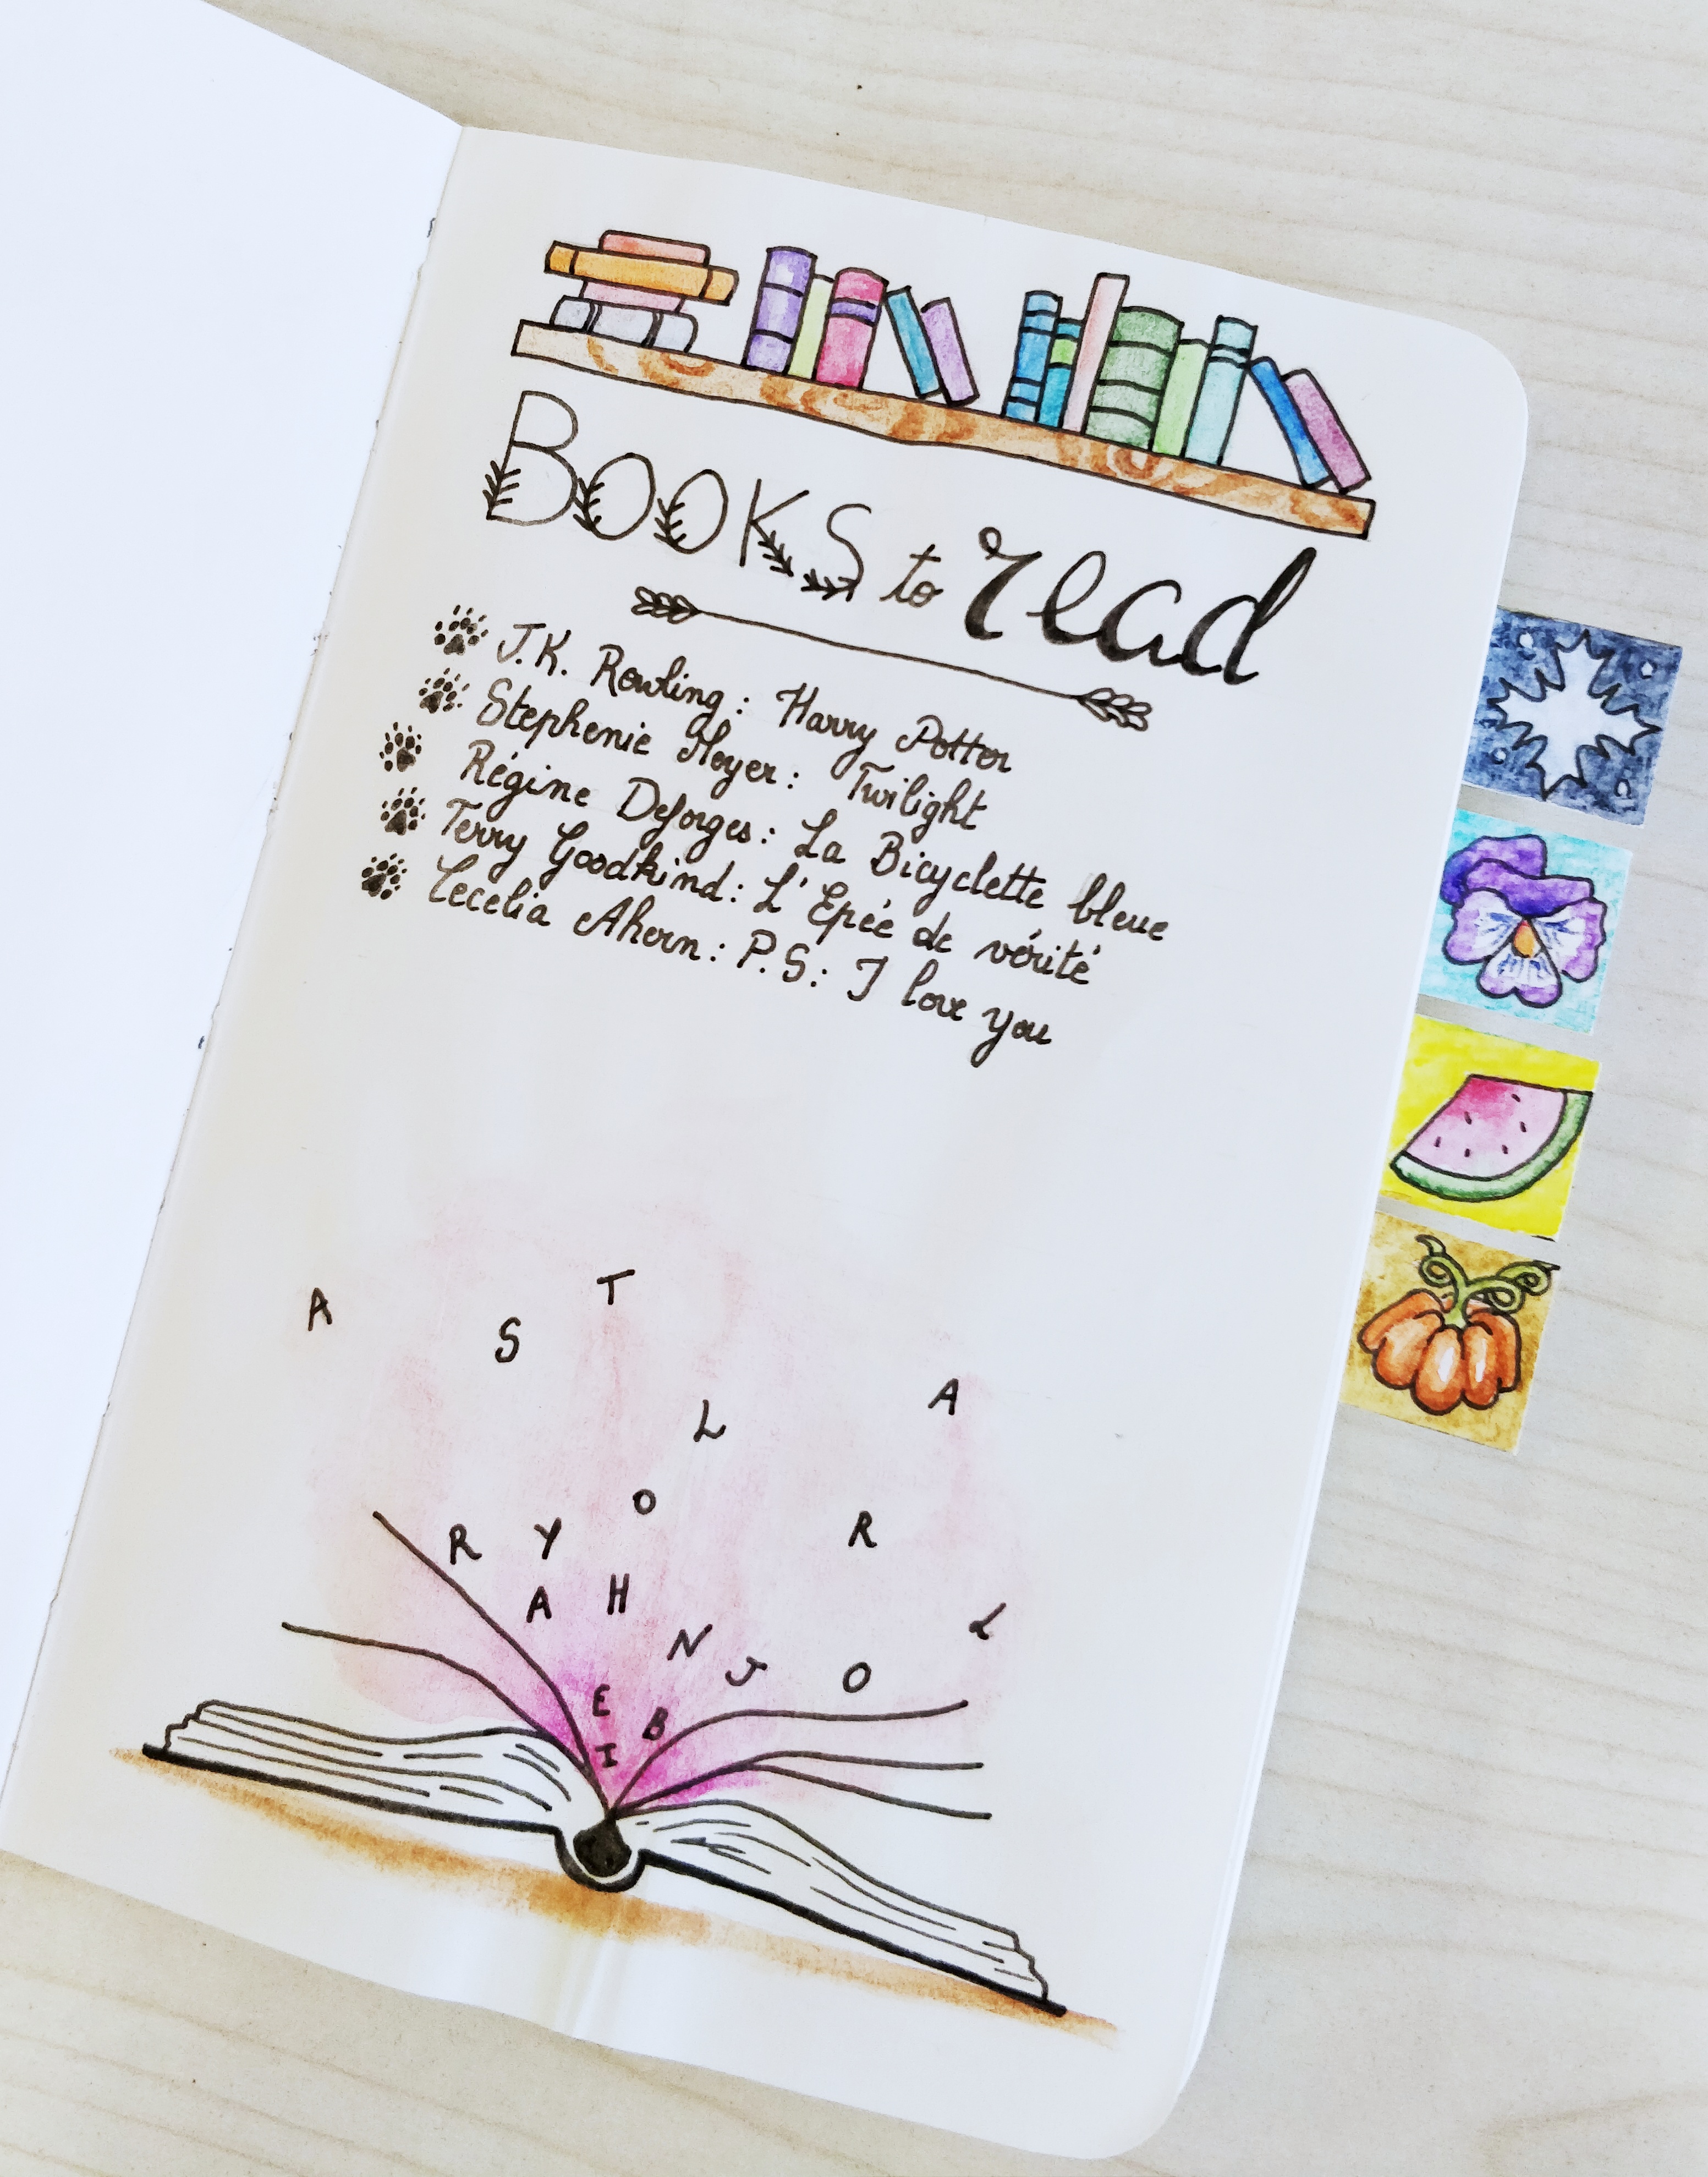 BOOKS to read
J.K. Rowling : Harry Potter
Stephenie Meyer : Twilight
Régine Deforges : La Bicyclette bleue
Terry Goodkind : L'Epée de vérité
Cecelia Ahern : P.S : I love you
A S T
L A
O
R Y R
A H
N J O L
E B
I